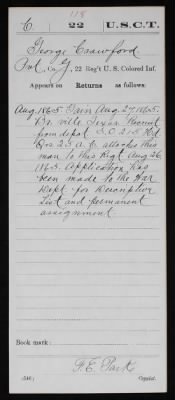 118
C | 22 | U.S.C.T.
George Crawford
Pvt, Co. G, 22 Reg't U. S. Colored Inf.
Appears on Returns as follows:
Aug. 1865 Gain Aug. 27, 1865.
Br. ville, Texas Recruit
from depot S.O. 215 Hd
Qrs 25 A.C. attaches this
man to this Regt Aug 26
1865. Application has
been made to the War
Dept for Descriptive
List and permanent
assignment.
Book mark:
F. E. Park
(546) Copyist.